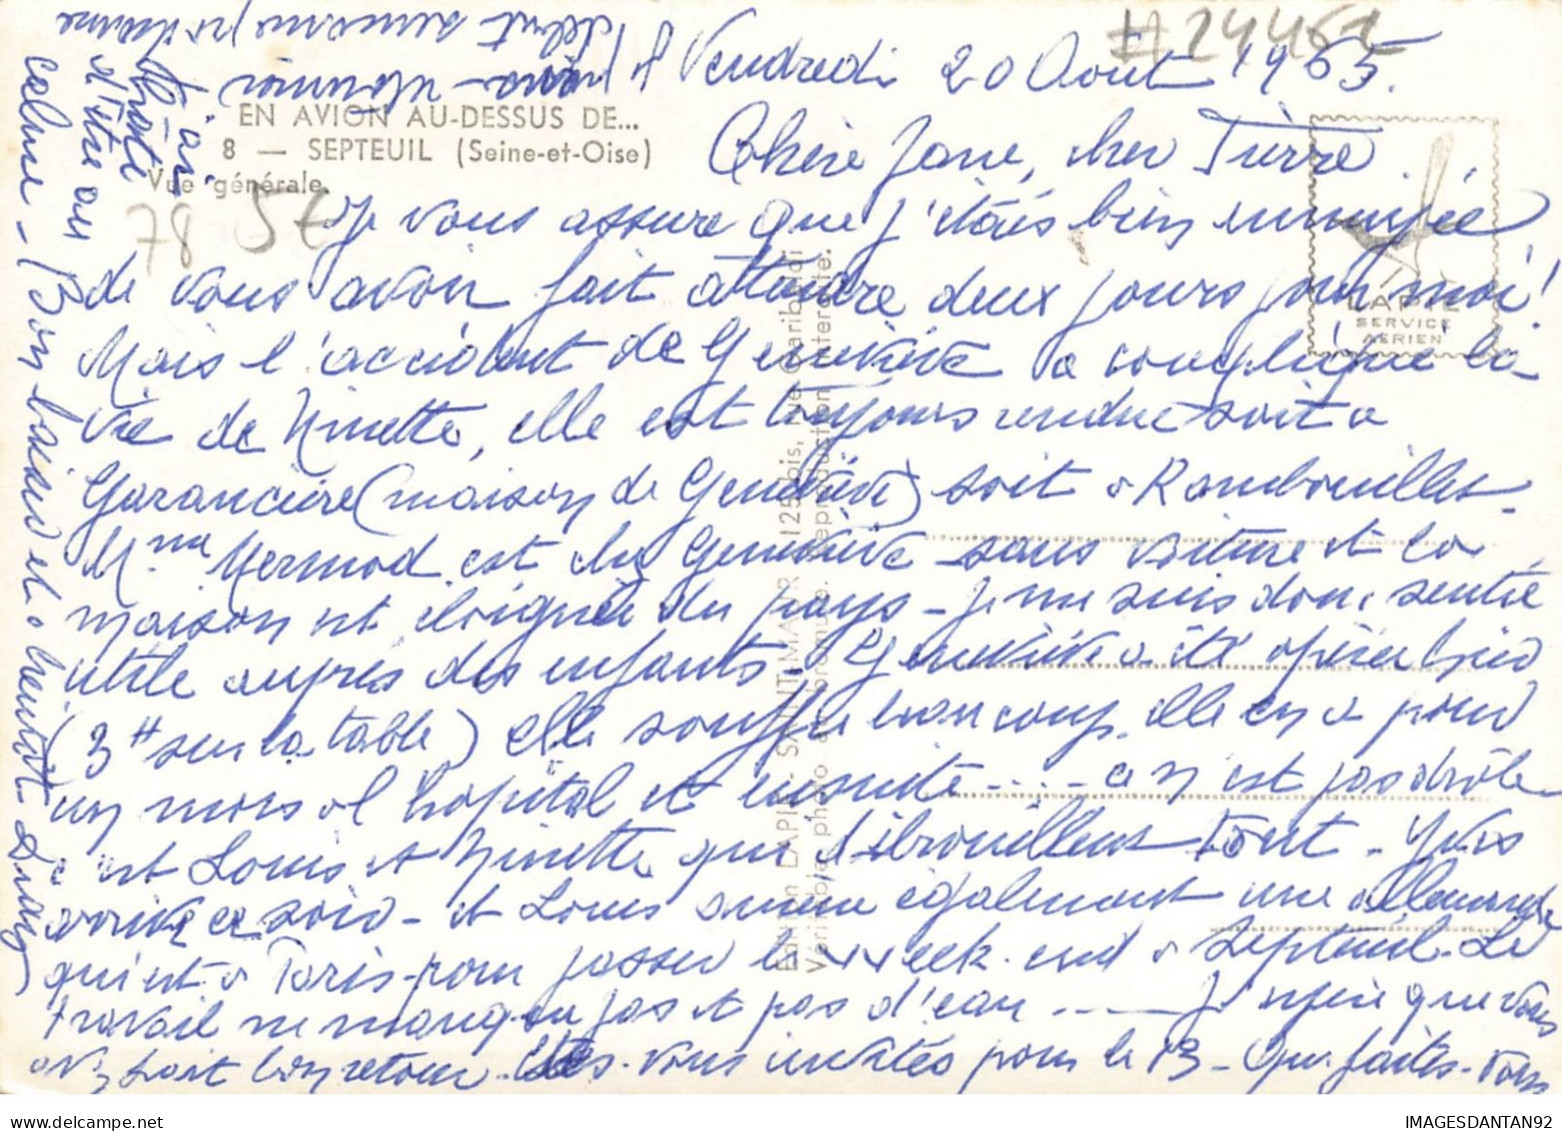 # 24461
Vendredi 20 Août 1965.
EN AVION AU-DESSUS DE...
8 — SEPTEUIL (Seine-et-Oise)
Vue générale.
78 5€
LAPIE
SERVICE
AERIEN
Chère Jane, cher Pierre.
Je vous assure que j'étais bien ennuyée
de vous avoir fait attendre deux jours pour moi!
Mais l'accident de Geneviève a compliqué la
vie de Ninette, elle est toujours rendue soit a
Garancière (maison de Geneviève) soit a Rambouillet -
Mme Mermod est chez Geneviève sans voiture et la
maison est éloignée du pays - Je me suis donc sentie
utile auprès des enfants. Geneviève a été opérée lundi
(3H sur la table) elle souffre beaucoup. elle en a pour
un mois d'hopital et ensuite.... ce n'est pas drôle
c'est Louis et Ninette qui débrouillent tout - Yves
arrive ce soir - et Louis amène également une allemande
qui est a Paris pour passer le week-end a Septeuil. Le
travail ne manque pas et pas d'eau .... J'espère que vous
avez fait bon retour. Etes-vous invités pour le 13 - Que faites-vous
Edition LAPIE - SAINT-MAUR 125 bis, rue Garibaldi
Véritable photo au bromure. Reproduction interdite.
début semaine prochaine
J'ai
hâte
d'être au
calme - Bon baiser et a bientôt
IMAGESDANTAN92